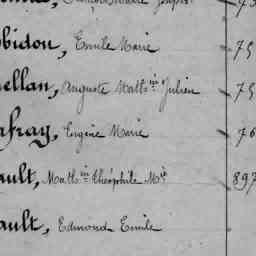 bidou, Emile Marie 75
ellan, Auguste Math.in Julien 75
afray, Eugène Marie 76
ault, Math.in Théophile M.ie 897
ault, Edmond Emile